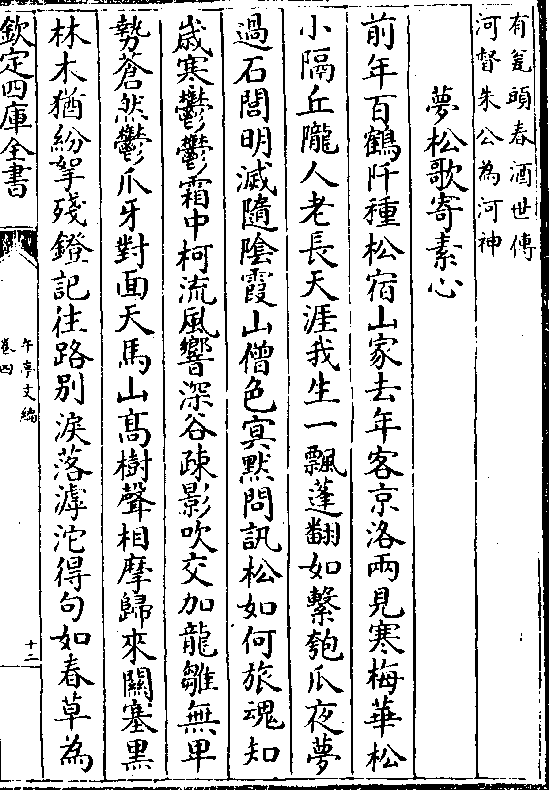 有瓮頭春酒世傳
河督朱公為河神
夢松歌寄素心
前年百鶴阡種松宿山家去年客京洛兩見寒梅華松
小隔丘隴人老長天涯我生一飄蓬翻如繫匏瓜夜夢
過石閭明滅隨陰霞山僧色寞默問訊松如何旅魂知
歲寒鬱鬱霜中柯流風響深谷疎影吹交加龍雛無卑
勢蒼然鬱爪牙對面天馬山髙樹聲相摩歸來關塞黑
林木猶紛拏殘鐙記往路别淚落滹沱得句如春草為
欽定四庫全書
午亭文編
卷四
十二